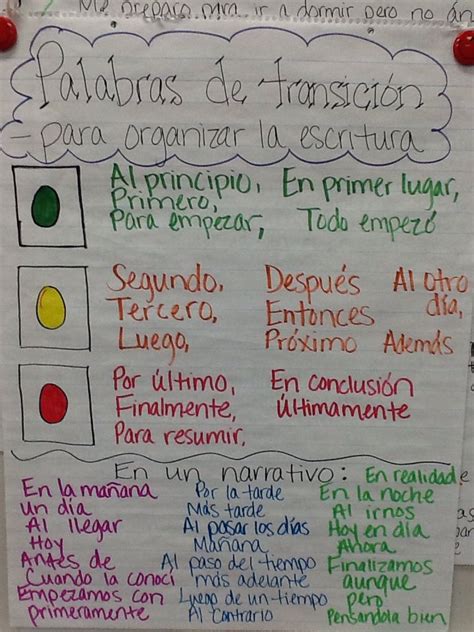 Me preparo para ir a dormir pero no
Palabras de transición
- para organizar la escritura
Al principio, En primer lugar,
Primero,
Para empezar, Todo empezó
Segundo, Después Al otro
Tercero, Entonces día,
Luego, Próximo Además
Por último, En conclusión
Finalmente, últimamente
Para resumir,
En un narrativo: En realidad
En la mañana Por la tarde En la noche
un día Más tarde Al irnos
Al llegar Al pasar los días Hoy en día
Hoy Mañana Ahora
Antes de Al paso del tiempo Finalizamos
Cuando la conocí más adelante aunque
Empezamos con Luego de un tiempo pero
primeramente Al contrario Pensandola bien